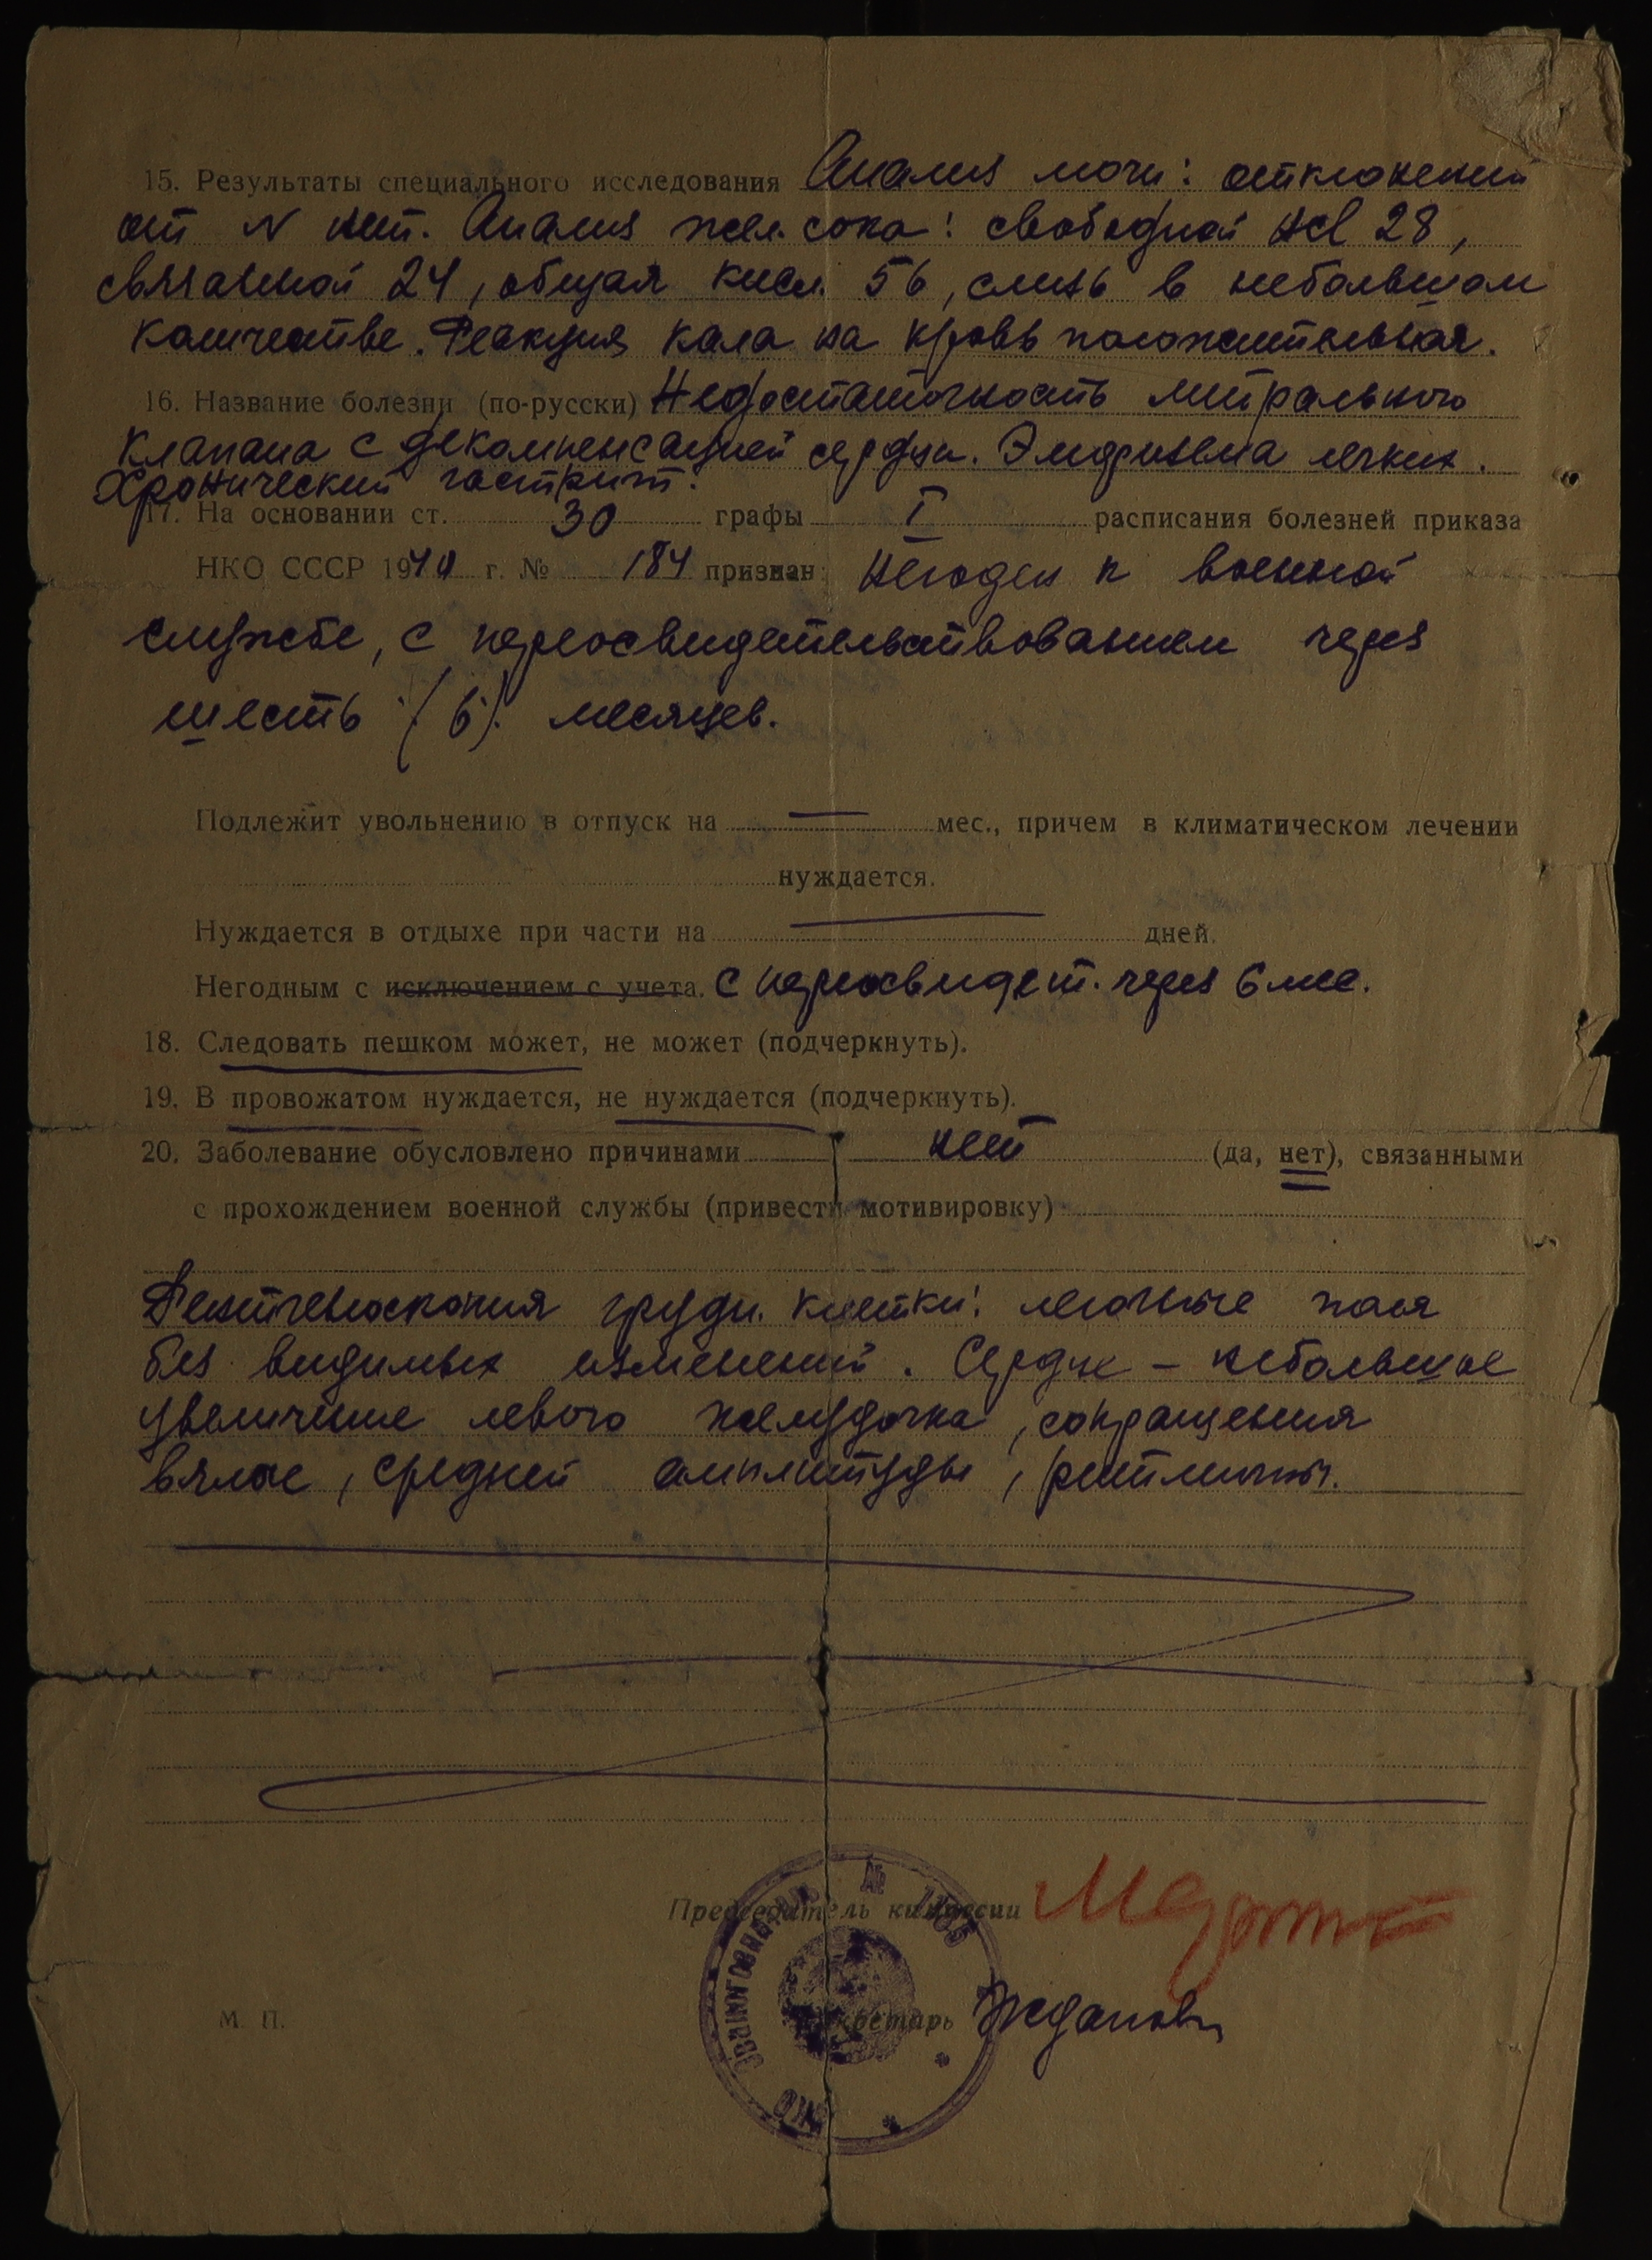 15. Результаты специального исследования Анализ мочи: отклонений
от N нет. Анализ жел. сока: свободной HCl 28,
связанной 24, общая кисл. 56, слизь в небольшом
количестве. Реакция кала на кровь положительная.
16. Название болезни (по-русски) Недостаточность митрального
клапана с декомпенсацией сердца. Эмфизема легких.
Хронический гастрит.
17. На основании ст. 30 графы I расписания болезней приказа
НКО СССР 1940 г. № 184 признан: Негоден к военной
службе, с переосвидетельствованием через
шесть (6) месяцев.
Подлежит увольнению в отпуск на — мес., причем в климатическом лечении
нуждается.
Нуждается в отдыхе при части на — дней.
Негодным с исключением с учета. с переосвидет. через 6 мес.
18. Следовать пешком может, не может (подчеркнуть).
19. В провожатом нуждается, не нуждается (подчеркнуть).
20. Заболевание обусловлено причинами нет (да, нет), связанными
с прохождением военной службы (привести мотивировку)
Рентгеноскопия грудн. клетки: легочные поля
без видимых изменений. Сердце – небольшое
увеличение левого желудочка, сокращения
вялые, средней амплитуды, ритмичны.
Председатель комиссии
М. П.
Секретарь Жданов
НКО ЭВАКОГОСПИТАЛЬ №